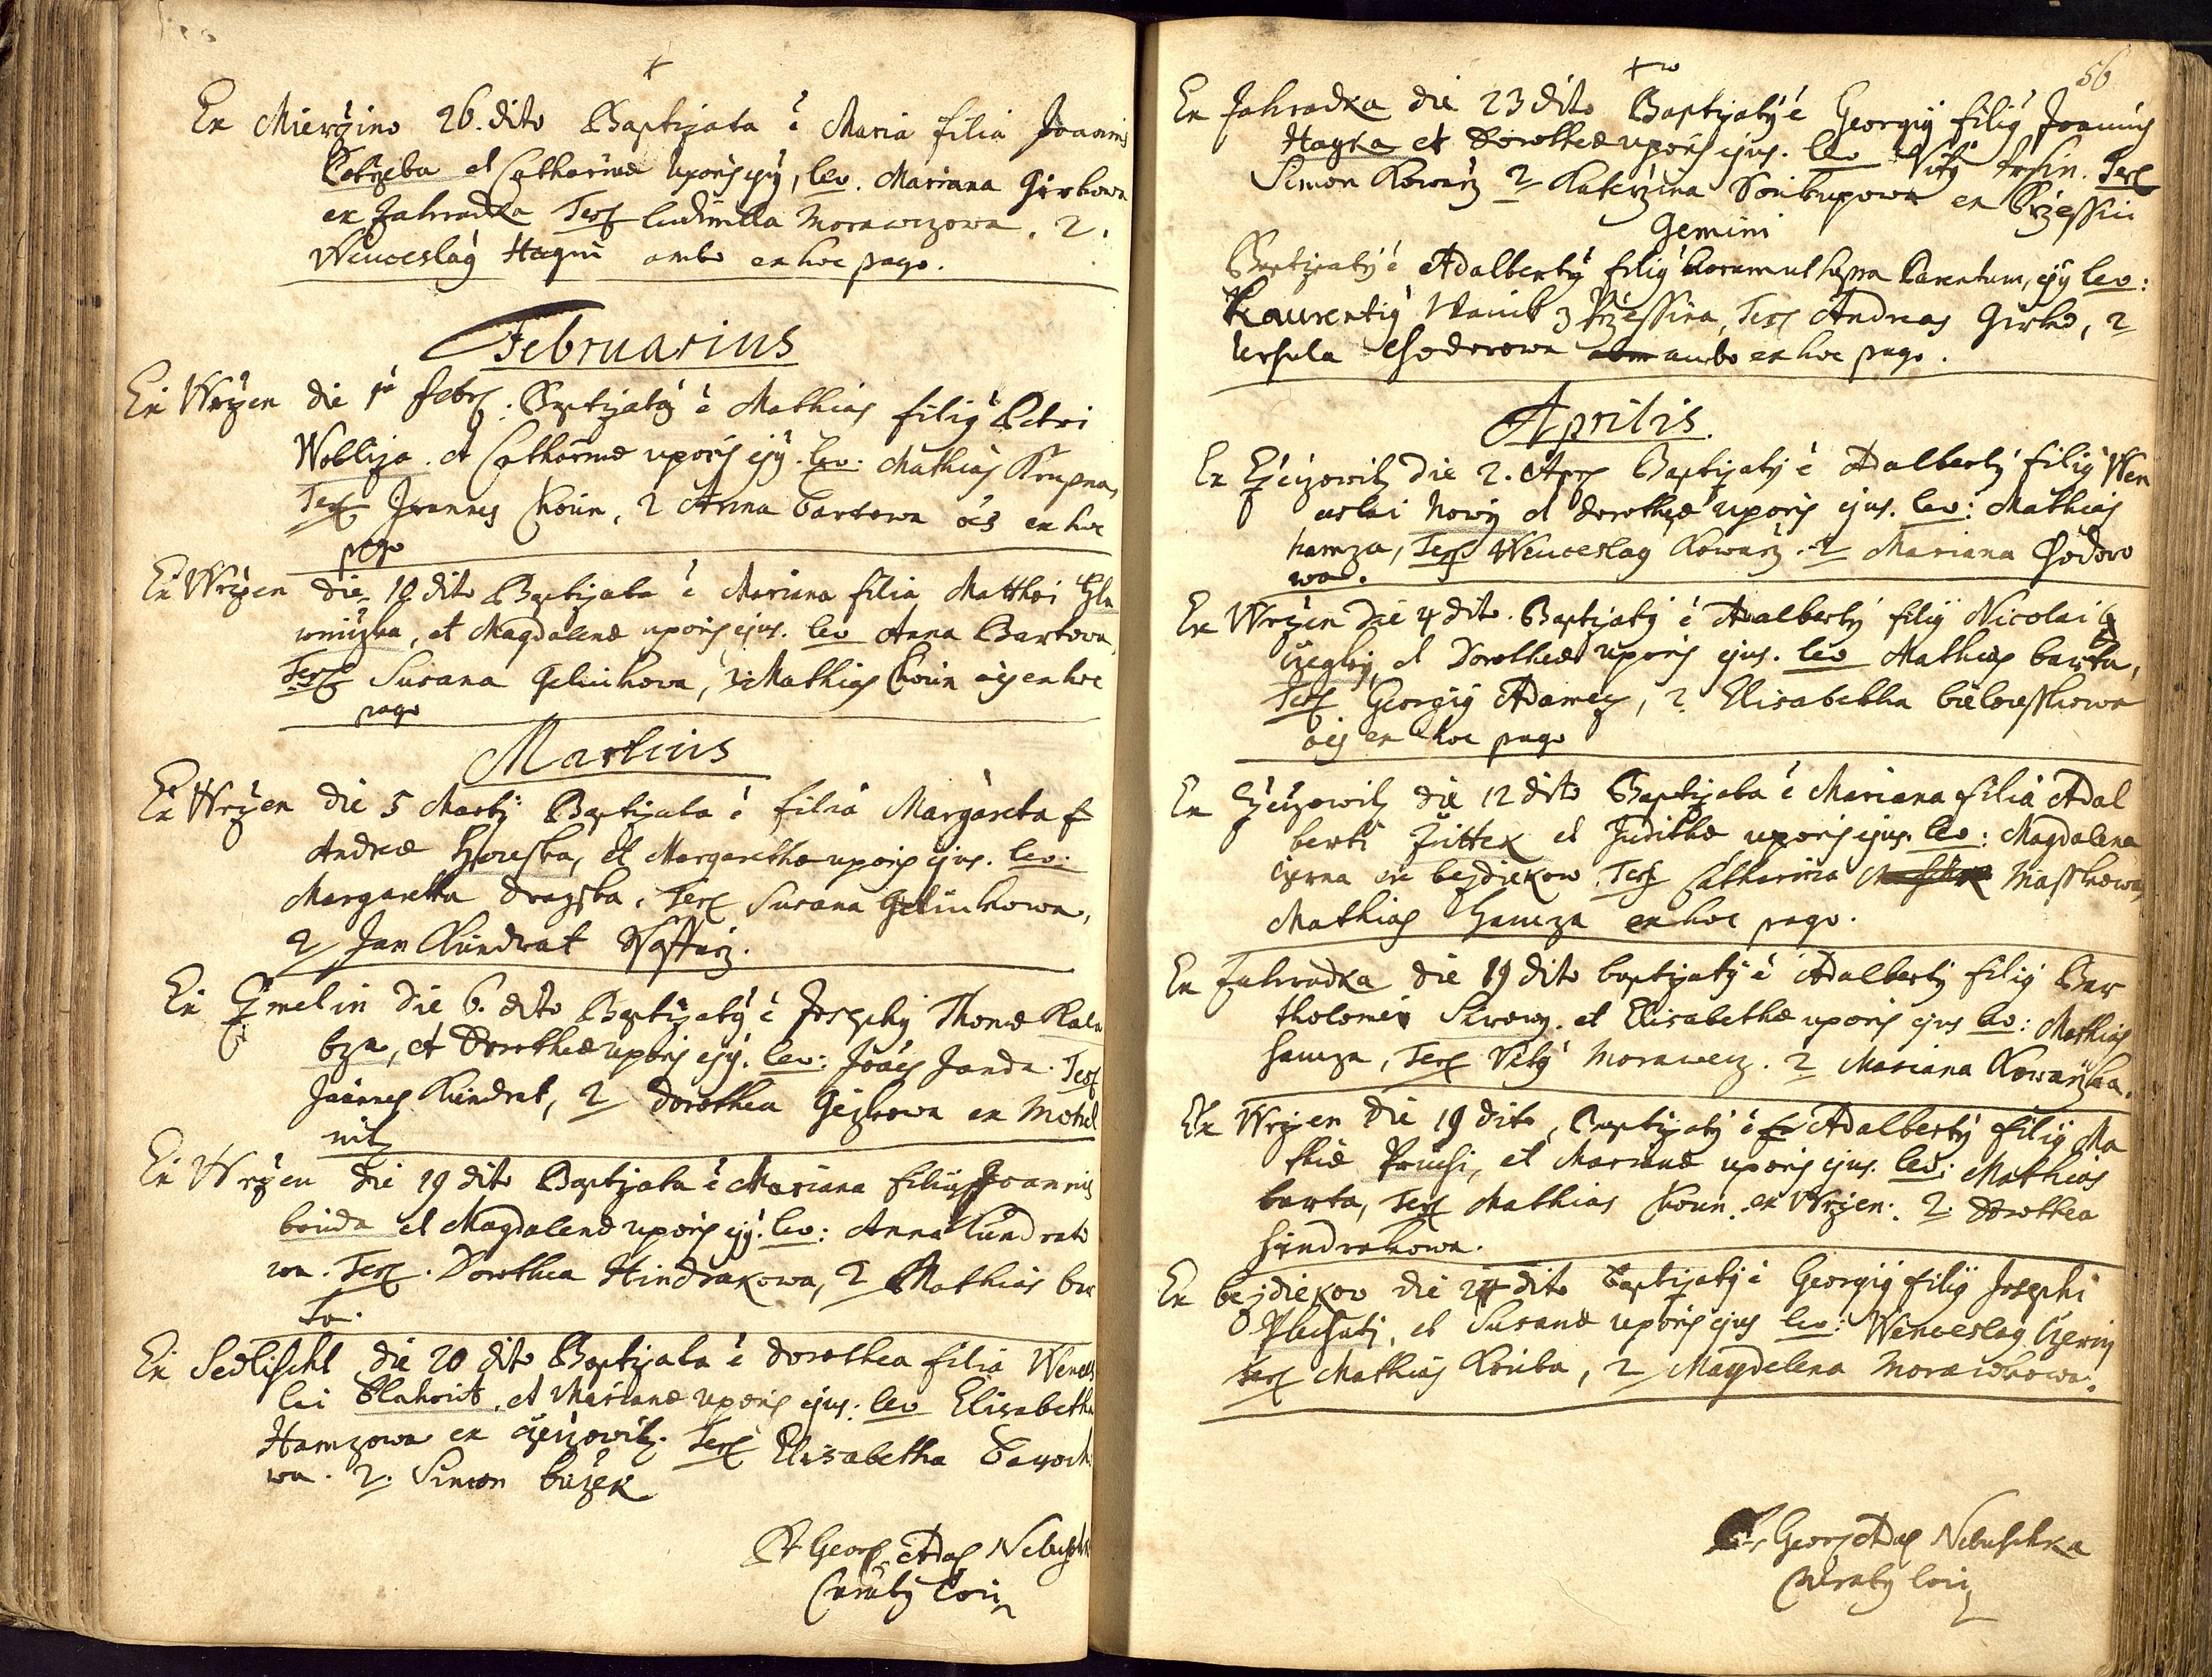 Ex Mierzino 26. dito Baptizata ē Maria filia Joannis
Potrzeba et Catharinæ uxoris ejꝰ, lev. Mariana Girkowa
ex Zahradka Test Ludmilla Morawczowa. 2.
Wenceslaꝰ Hagni ambo ex hoc pago.
Februarius
Ex Wrzen die 1a Febr: Baptizatꝰ ē Mathias filiꝰ Petri
Wobliza. et Catharinæ uxoris ejꝰ. lev: Mathias Krupna,
Test Joannes Choun, 2 Anna Bartowa oēs ex hoc
pago
Ex Wrzen die 18 dito Baptizata ē Mariana filia Matthæi Hla
wniczka, et Magdalenæ uxoris ejus. lev Anna Bartowa,
Test Susana Gelinkowa, 2 Mathias Choun oēs ex hoc
pago
Martius
Ex Wrzen die 5 Martij Baptizata ē filia Margareta f
Andreæ Horeska, et Margarethæ uxoris ejus. lev:
Margaretta Drazska, Test Susana Gelinkowa,
2 Jan Kundrat Ssaffarz.
Ex Gmelin die 6. dito Baptizatꝰ ē Josephꝰ Thomæ Kala
bza, et Dorotheæ uxoris ejꝰ. lev: Joāes Janda. Test
Joannes Kundrat, 2 Dorothea Gezkowa ex Motel
nitz
Ex Wrzen die 19 dito Baptizata ē Mariana filia Joannis
bouda et Magdalenæ uxoris ejꝰ. lev: Anna Kundrato
wa. Test. Dorothea Hindrakowa, 2 Mathias bar
ta.
Ex Sedlischt die 20 dito Baptizata ē Dorothea filia Wences
lai Blahout, et Marianæ uxoris ejus: lev Elisabetha
Hamzowa ex Czeizowitz. Test Elisabetha
wa. 2. Simon buzek
P. Georg Adal Nebuschka
Curatꝰ loci
56
Ex Zahradka die 23 dito Baptizatꝰ ē Georgiꝰ filiꝰ Joannis
Hayka et Dorotheæ uxoris ejus. lev Vitꝰ Test
Simon Kowarz 2 Katerzina Soukupowa ex Przessin
Gemini
Baptizatꝰ ē Adalbertꝰ filiꝰ horum ut supra Parentum, ejꝰ lev:
Laurentiꝰ Wanik z Przessina, Test Andreas Girka, 2
Ursula Chodorowa ambo ex hoc pago.
Aprilis.
Ex Czeizowitz die 2. Apr Baptizatꝰ ē Adalbertꝰ filiꝰ Wen
ceslai Nowy et Dorotheæ uxoris ejus. lev: Mathias
hamza, Test Wenceslaꝰ Kowarz. 2 Mariana Chodoro
wa.
Ex Wrzen die 4 dito. Baptizatꝰ ē Adalbertꝰ filiꝰ Nicolai
Czegky, et Dorotheæ uxoris ejus. lev Mathias barta,
Test Georgiꝰ Adamec, 2. Elisabetha bielousskowa
oēs ex hoc pago
Ex Czeizowitz die 12 dito Baptizata ē Mariana filia Adal
berti Zittek et Judithæ uxoris ejus. lev: Magdalena
Czerna ex bezdiekow Test Catharina Masskowa,
Mathias Hamza ex hoc pago.
Ex Zahradka die 19 dito baptizatꝰ ē Adalbertꝰ filiꝰ Bar
tholomei Sirowy. et Elisabethæ uxoris ejus lev: Mathias
hamza, Test Vitꝰ Morawecz. 2 Mariana Kowarzka.
Ex Wrzen die 19 dito, Baptizatꝰ ē Adalbertꝰ filiꝰ Ma
thiæ Pruchi, et Marianæ uxoris ejus. lev: Mathias
barta, Test Mathias Choun. ex Wrzen. 2. Dorothea
hyndrakowa.
Ex bezdiekov die 24 dito Baptizatꝰ ē Georgiꝰ filiꝰ Josephi
Plechati, et Susanæ uxoris ejus lev: Wenceslaꝰ Czerny
Test Mathias Kouba, 2 Magdelena Morawkowa.
P. Georg Adal Nebuschka
Curatꝰ loci